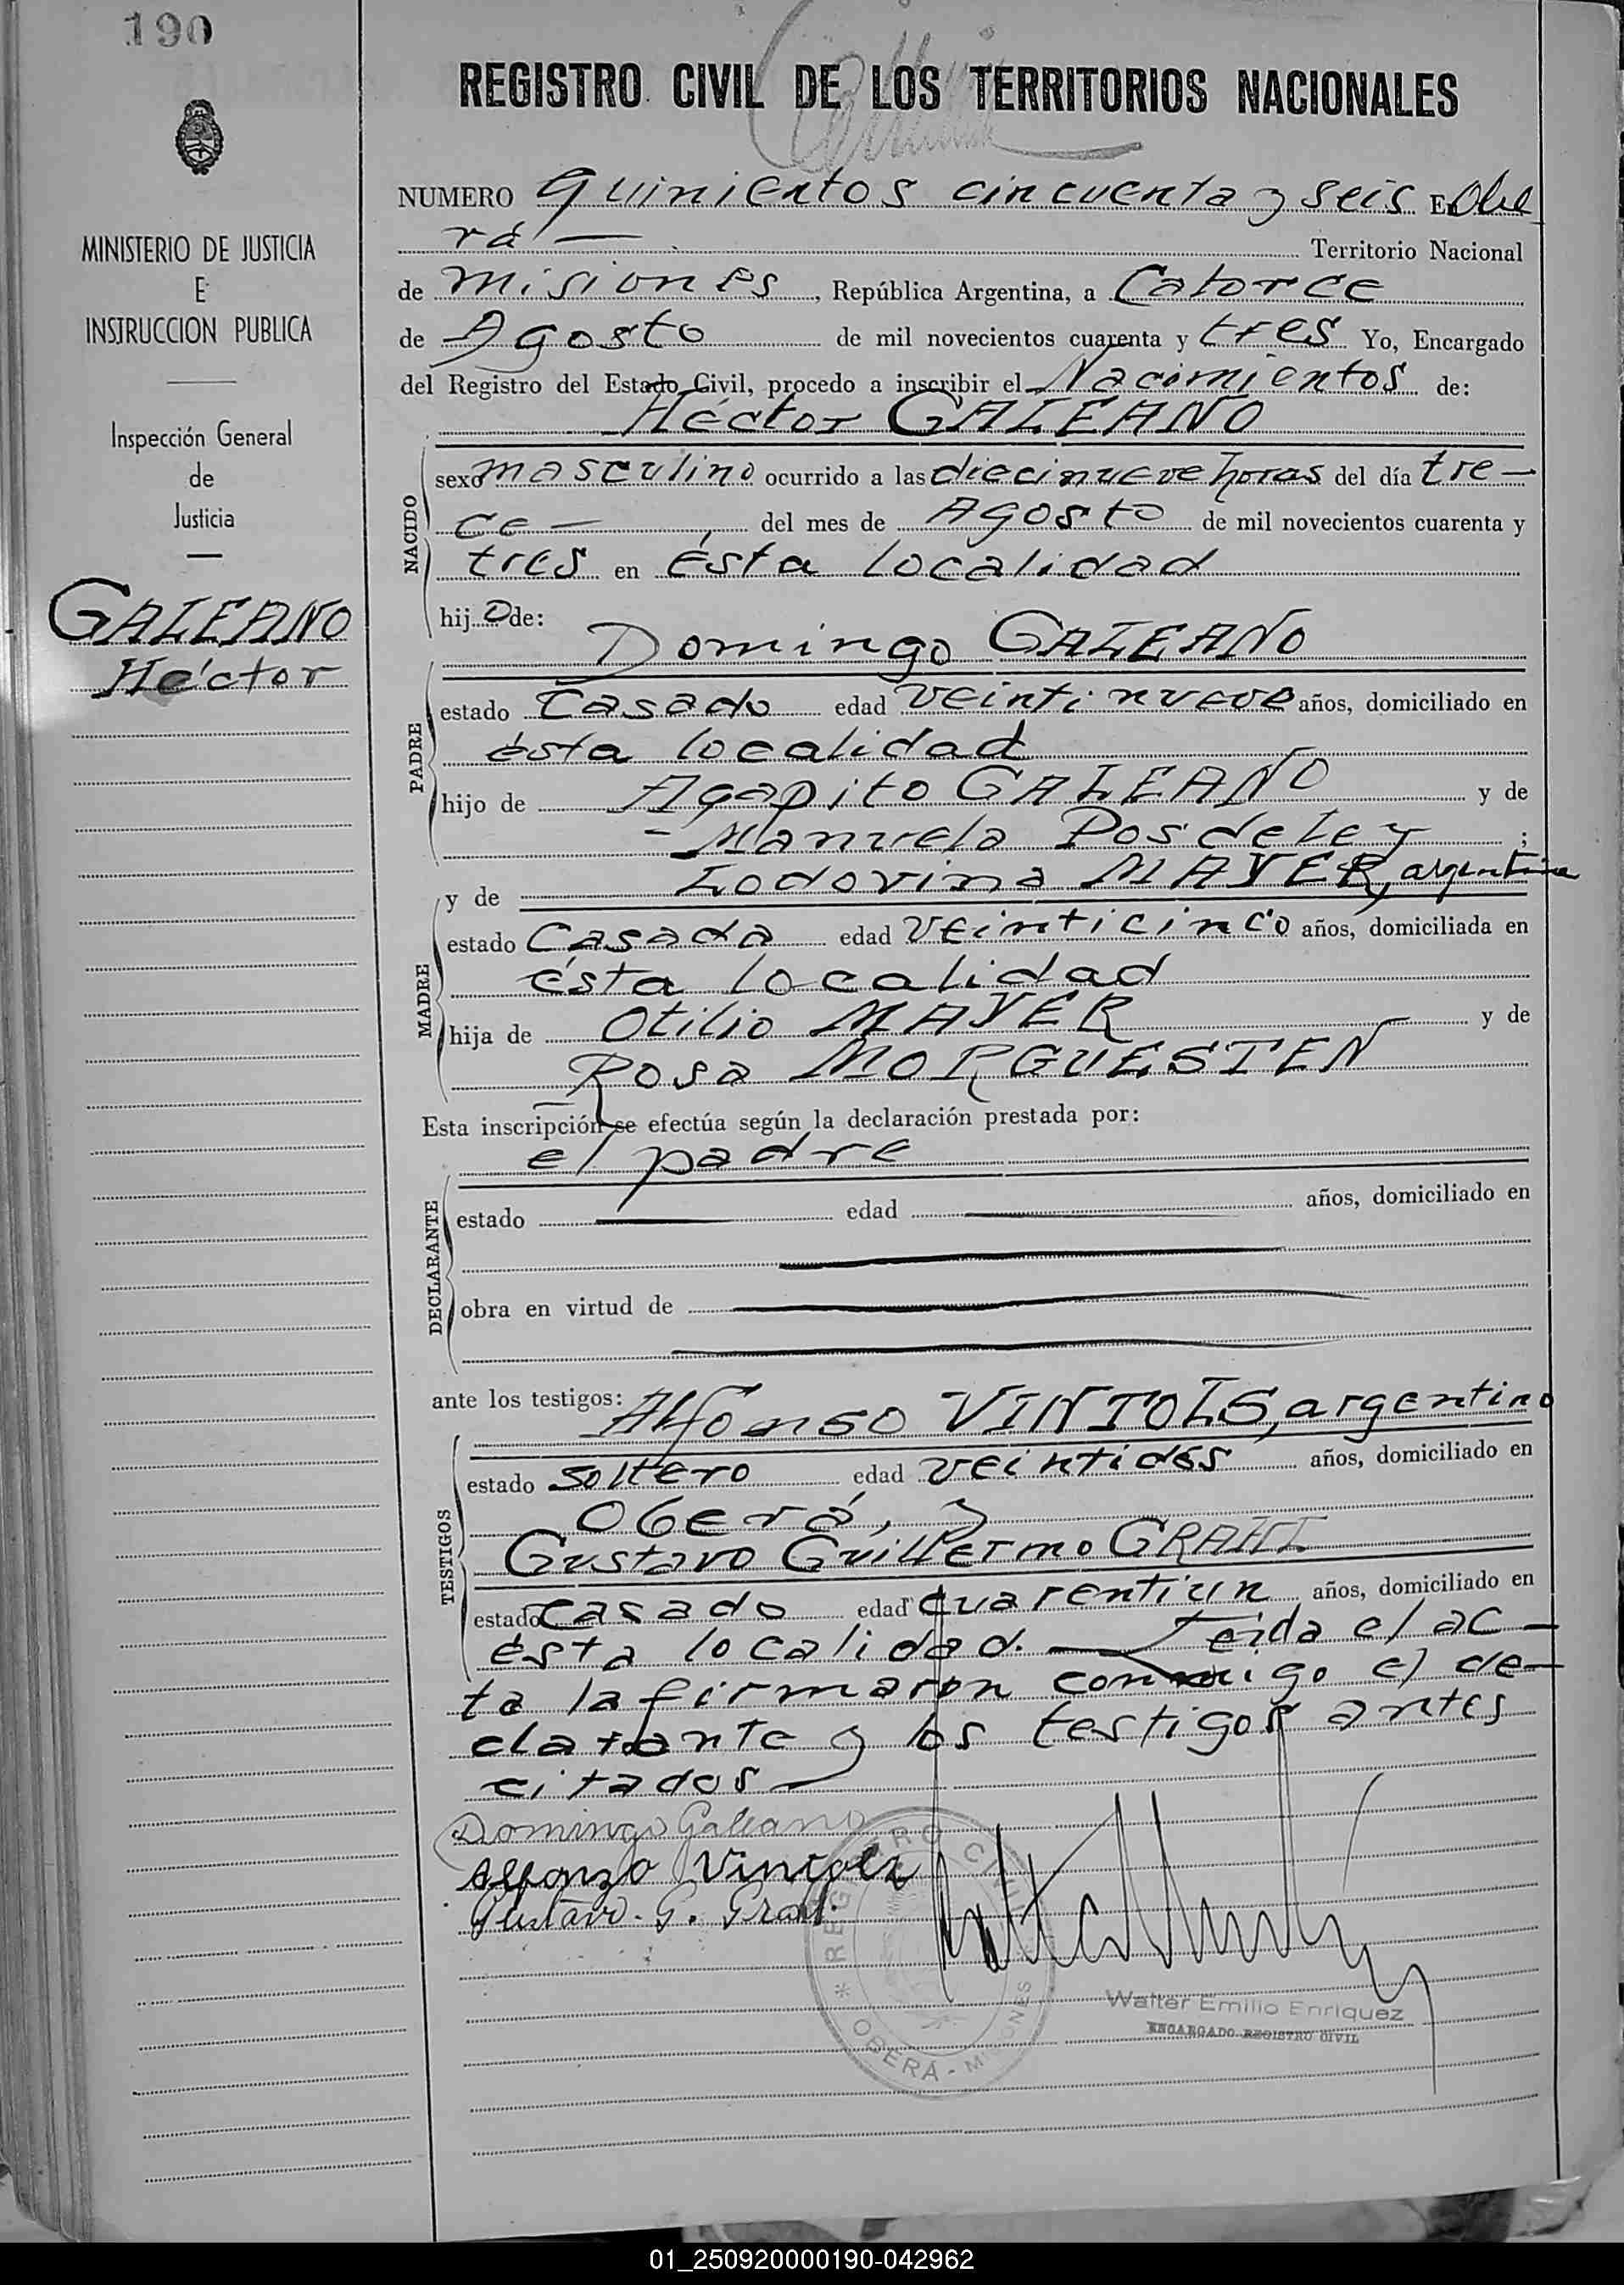 190
REGISTRO CIVIL DE LOS TERRITORIOS NACIONALES
MINISTERIO DE JUSTICIA
E
INSTRUCCION PUBLICA
Inspección General
de
Justicia
GALEANO
Héctor
NUMERO quinientos cincuenta y seis En Obe
rá —
Territorio Nacional
de misiones, República Argentina, a Catorce
de Agosto de mil novecientos cuarenta y tres Yo, Encargado
del Registro del Estado Civil, procedo a inscribir el Nacimientos de:
Héctor GALEANO
NACIDO
sexo masculino ocurrido a las diecinueve horas del día tre—
ce — del mes de Agosto de mil novecientos cuarenta y
tres en Ésta localidad
hijo de:
Domingo GALEANO
PADRE
estado Casado edad veintinueve años, domiciliado en
ésta localidad
hijo de Agapito GALEANO y de
- Manuela Posdeley ;
y de Lodovina MAYER, argentina
MADRE
estado Casada edad veinticinco años, domiciliada en
ésta localidad
hija de Otilio MAYER y de
Rosa MORGUESTEN
Esta inscripción se efectúa según la declaración prestada por:
el padre
DECLARANTE
estado edad años, domiciliado en
obra en virtud de
ante los testigos: Alfonso VINTOLS, argentino
TESTIGOS
estado soltero edad veintidós años, domiciliado en
Oberá, y
Gustavo Guillermo GRAHL
estado casado edad cuarentiun años, domiciliado en
ésta localidad. — Leída el ac—
ta la firmaron conmigo el de—
clarante y los testigos antes
citados —
Domingo Galeano
Alfonzo
Gustavo. G. Grahl.
REGISTRO CIVIL
* OBERÁ - MISIONES
Walter Emilio Enriquez
ENCARGADO REGISTRO CIVIL
01_250920000190-042962